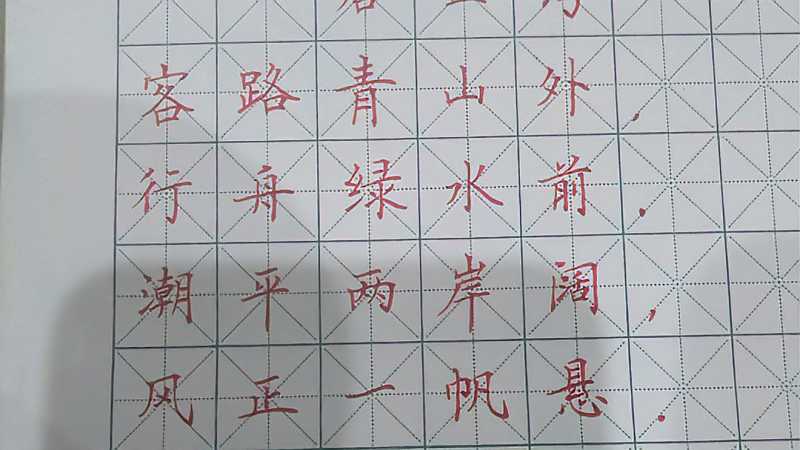 客路青山外,
行舟绿水前.
潮平两岸阔,
风正一帆悬.